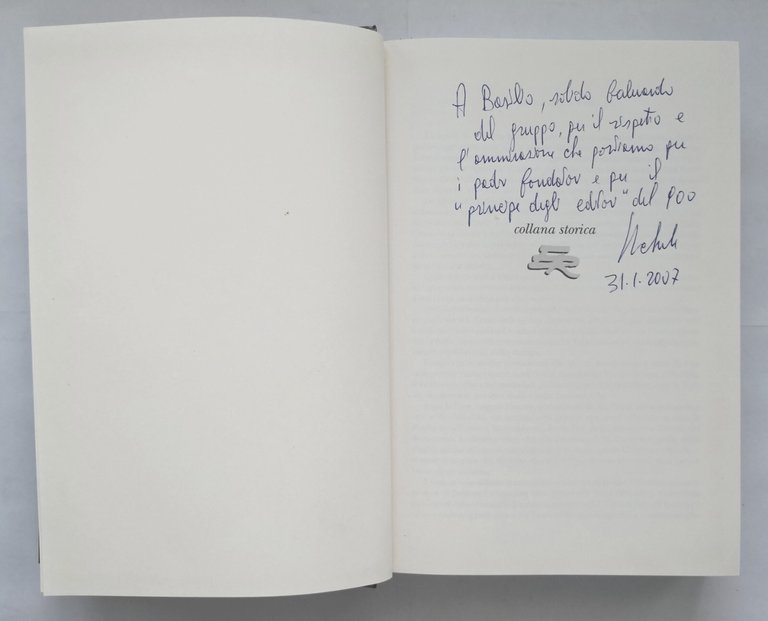 A Basilio, solido baluardo
del gruppo, per il rispetto e
l'ammirazione che portiamo per
i padri fondatori e per il
"principe degli editori" del 900
collana storica
31.1.2007